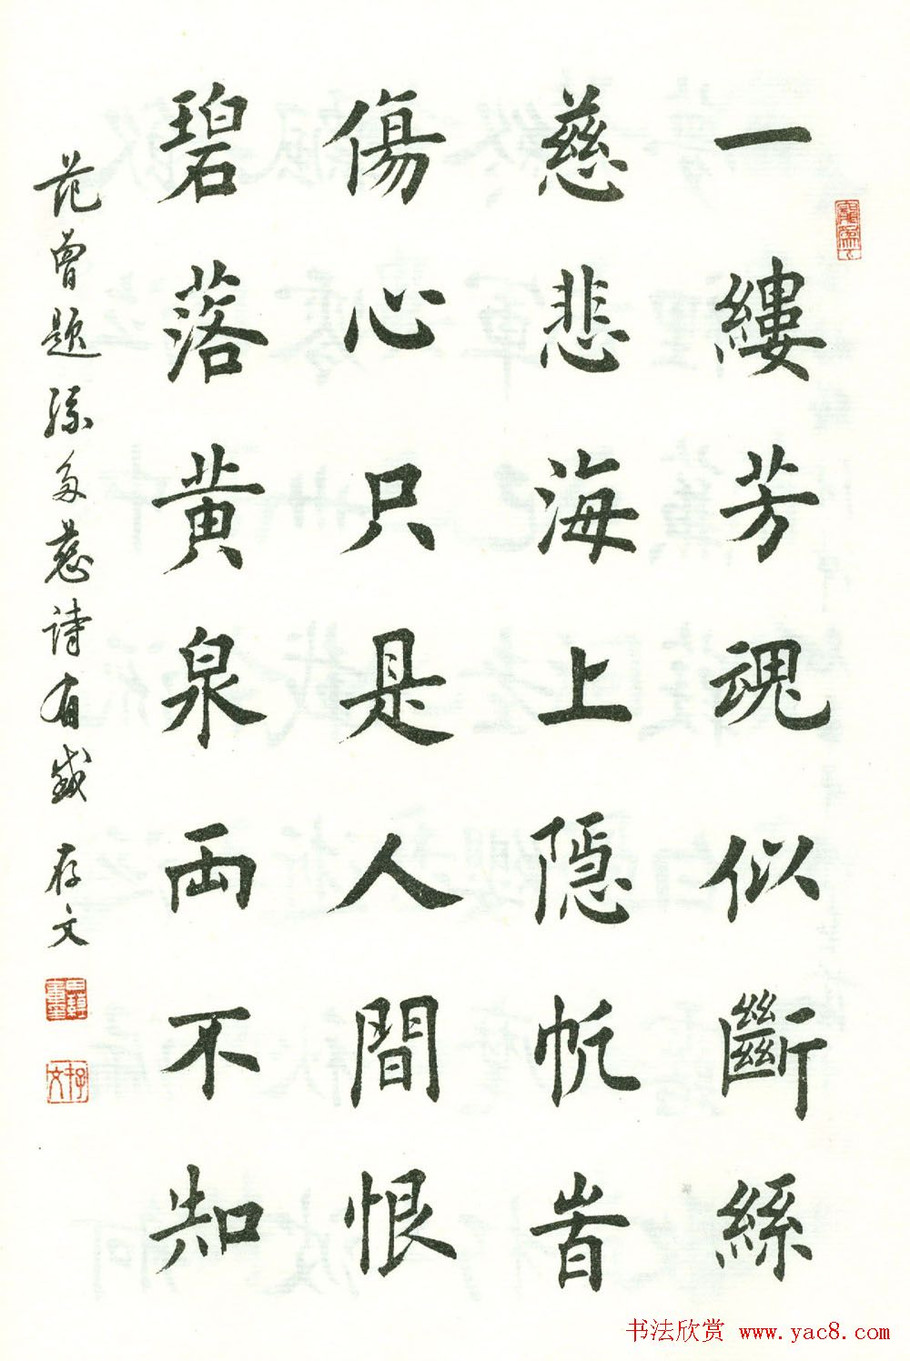 一縷芳魂似斷絲
慈悲海上隱帆旹
傷心只是人間恨
碧落黄泉両不知
范曾題孫多慈詩有感 存文
书法欣赏 www.yac8.com